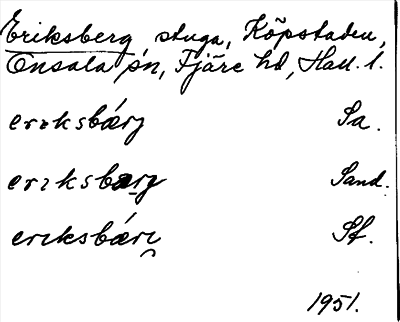 Eriksberg stuga, Köpstaden,
Onsala sn, Fjäre hd, Hall. l.
eriksbárj Sa.
eriksbærj Sand.
eriksbári̯ Sf.
1951.